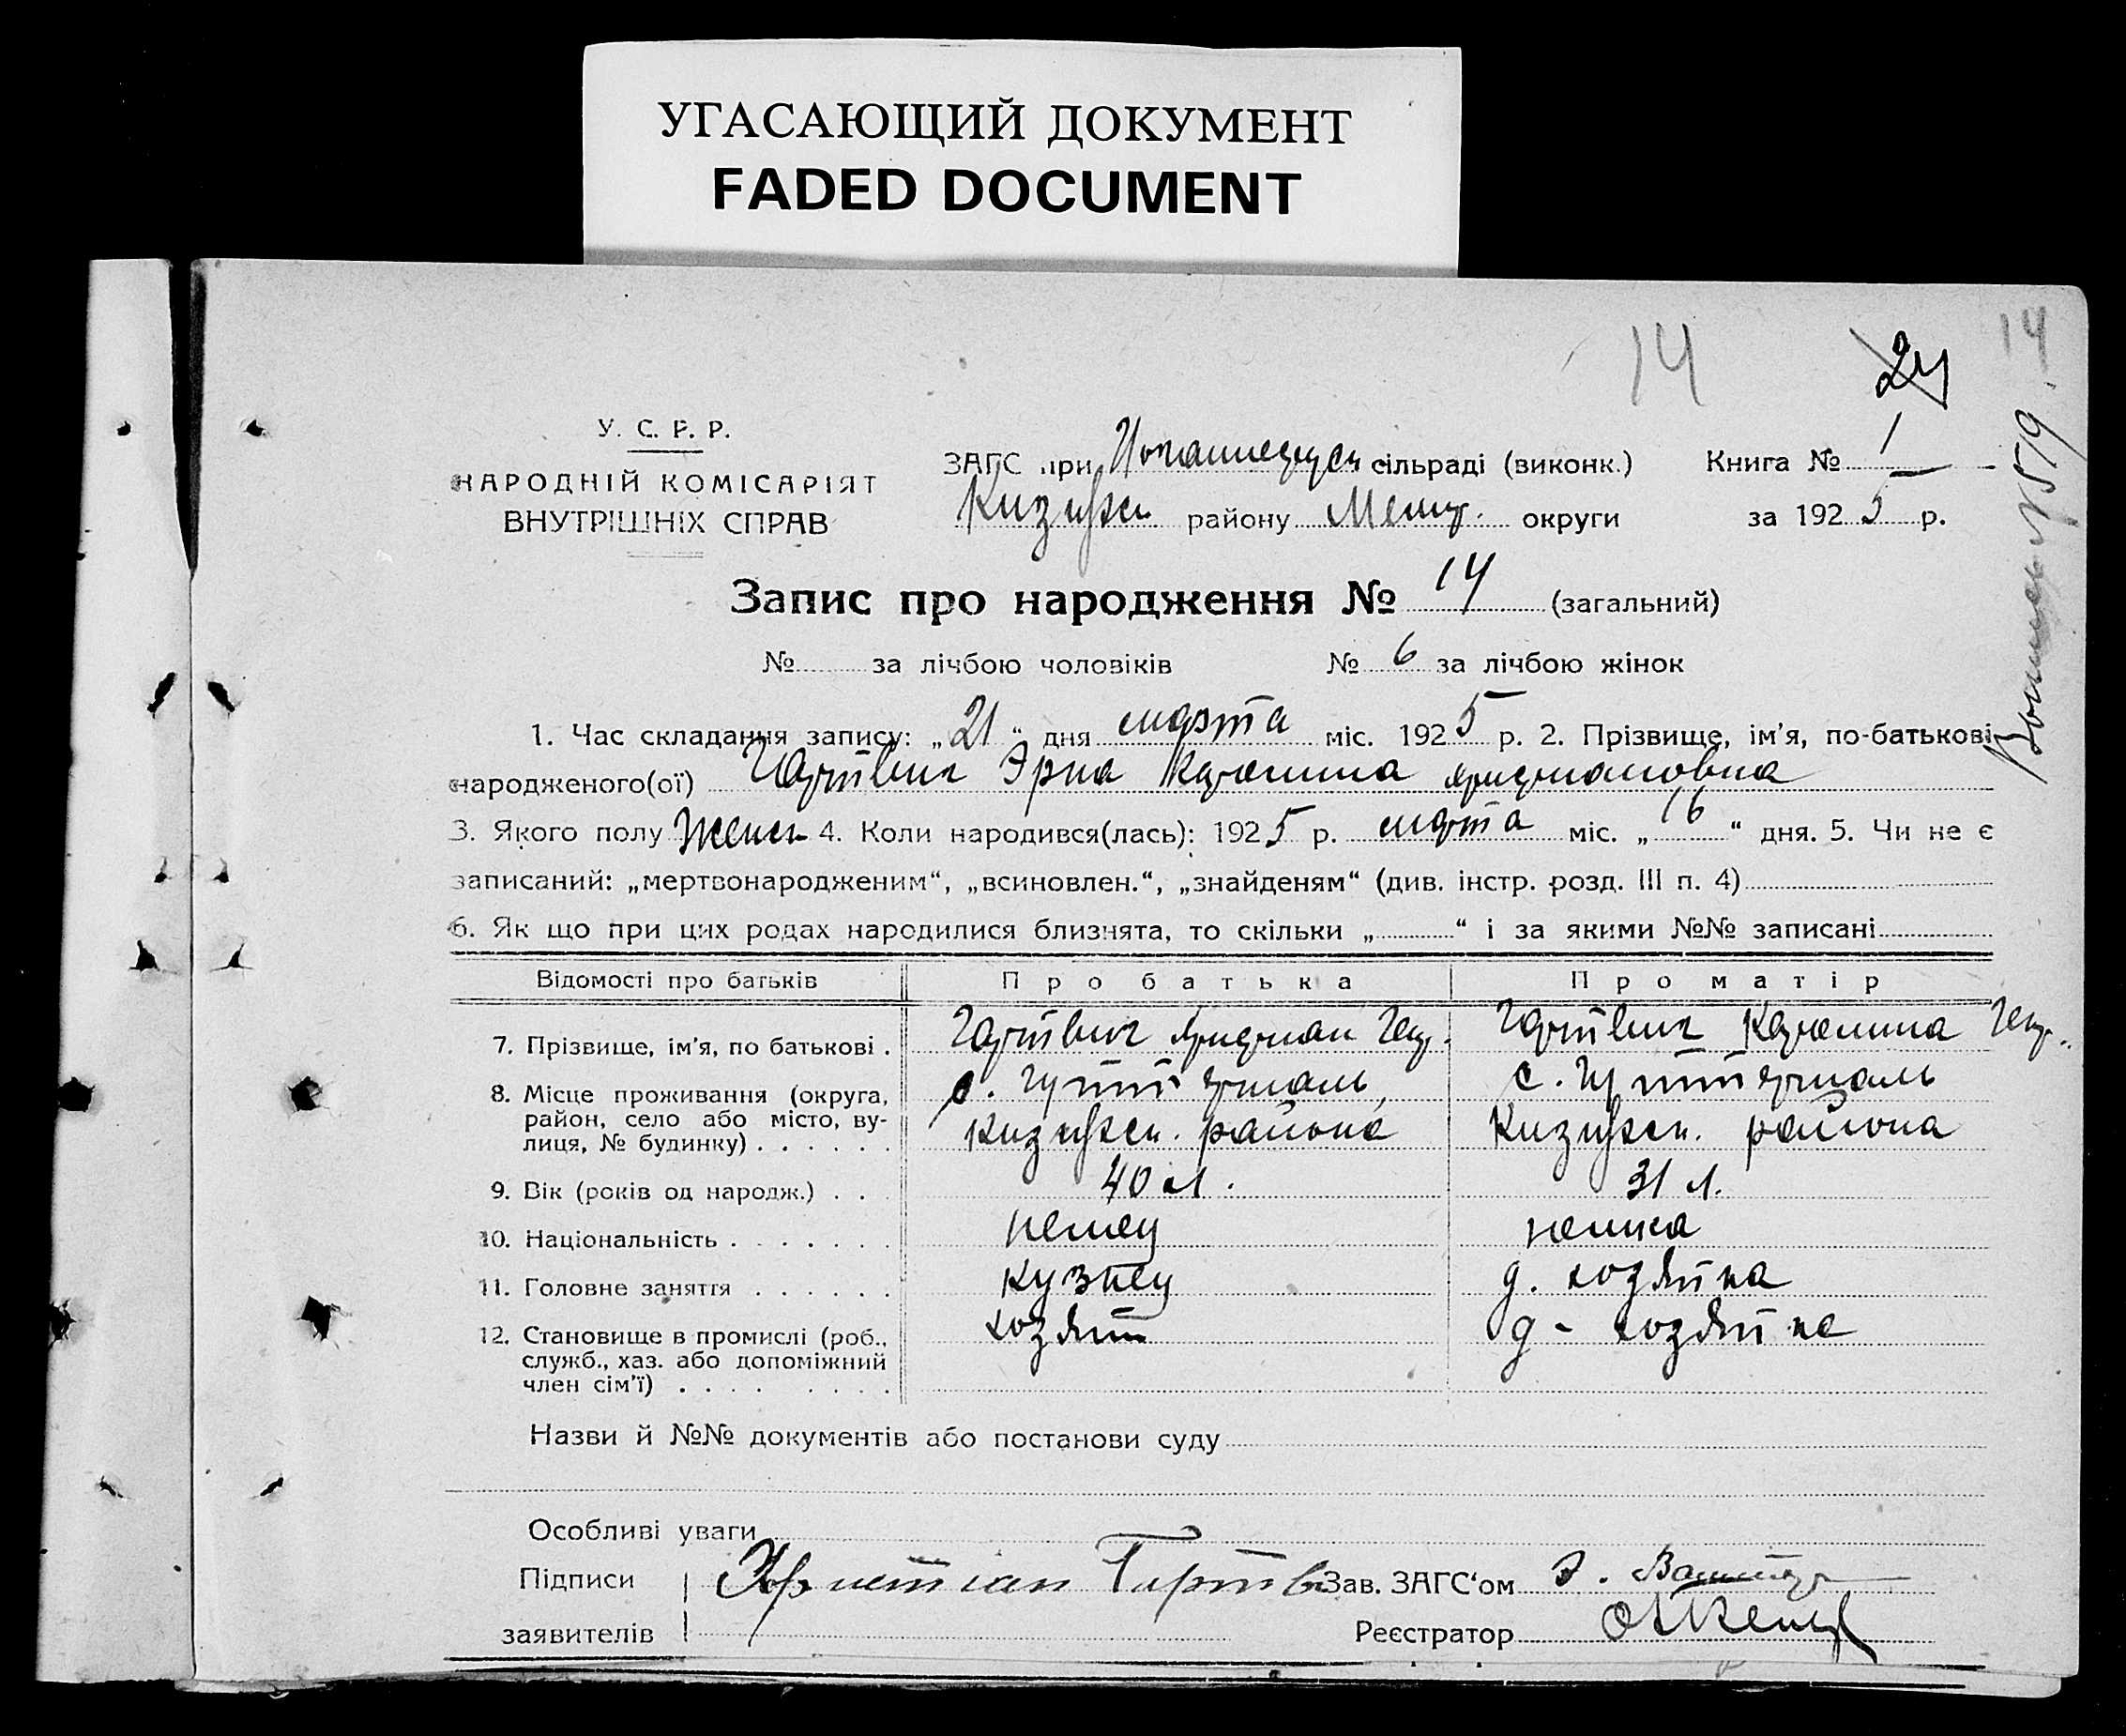 УГАСАЮЩИЙ ДОКУМЕНТ
FADED DOCUMENT
14
24
14
У. С. Р. Р.
НАРОДНІЙ КОМІСАРІЯТ
ВНУТРІШНІХ СПРАВ
ЗАГС при сільраді (виконк.)
району округи
Книга № 1
за 1925 р.
№ 519
Запис про народження № 14 (загальний)
№ за лічбою чоловіків № 6 за лічбою жінок
1. Час складання запису: „21“ дня марта міс. 1925 р. 2. Прізвище, ім'я, по-батькові
народженого(ої) Гартвиг Эрна Каролина
3. Якого полу Женск 4. Коли народився(лась): 1925 р. марта міс. „16“ дня. 5. Чи не є
записаний: „мертвонародженим“, „всиновлен.“, „знайденям“ (див. інстр. розд. III п. 4)
6. Як що при цих родах народилися близнята, то скільки „ “ і за якими №№ записані
Відомості про батьків Про батька Про матір
7. Прізвище, ім'я, по батькові . Гартвиг Гартвиг Каролина
8. Місце проживання (округа,
район, село або місто, ву-
лиця, № будинку) . . . . . .
района района
9. Вік (років од народж.) . . . 40 л. 31 л.
10. Національність . . . . . . . немец немка
11. Головне заняття . . . . . . кузнец д. хозяйка
12. Становище в промислі (роб.,
служб., хаз. або допоміжний
член сім'ї) . . . . . . . . .
хозяин д-хозяйка
Назви й №№ документів або постанови суду
Особливі уваги
Підписи Христиан Гартв Зав. ЗАГС'ом
заявителів Реєстратор